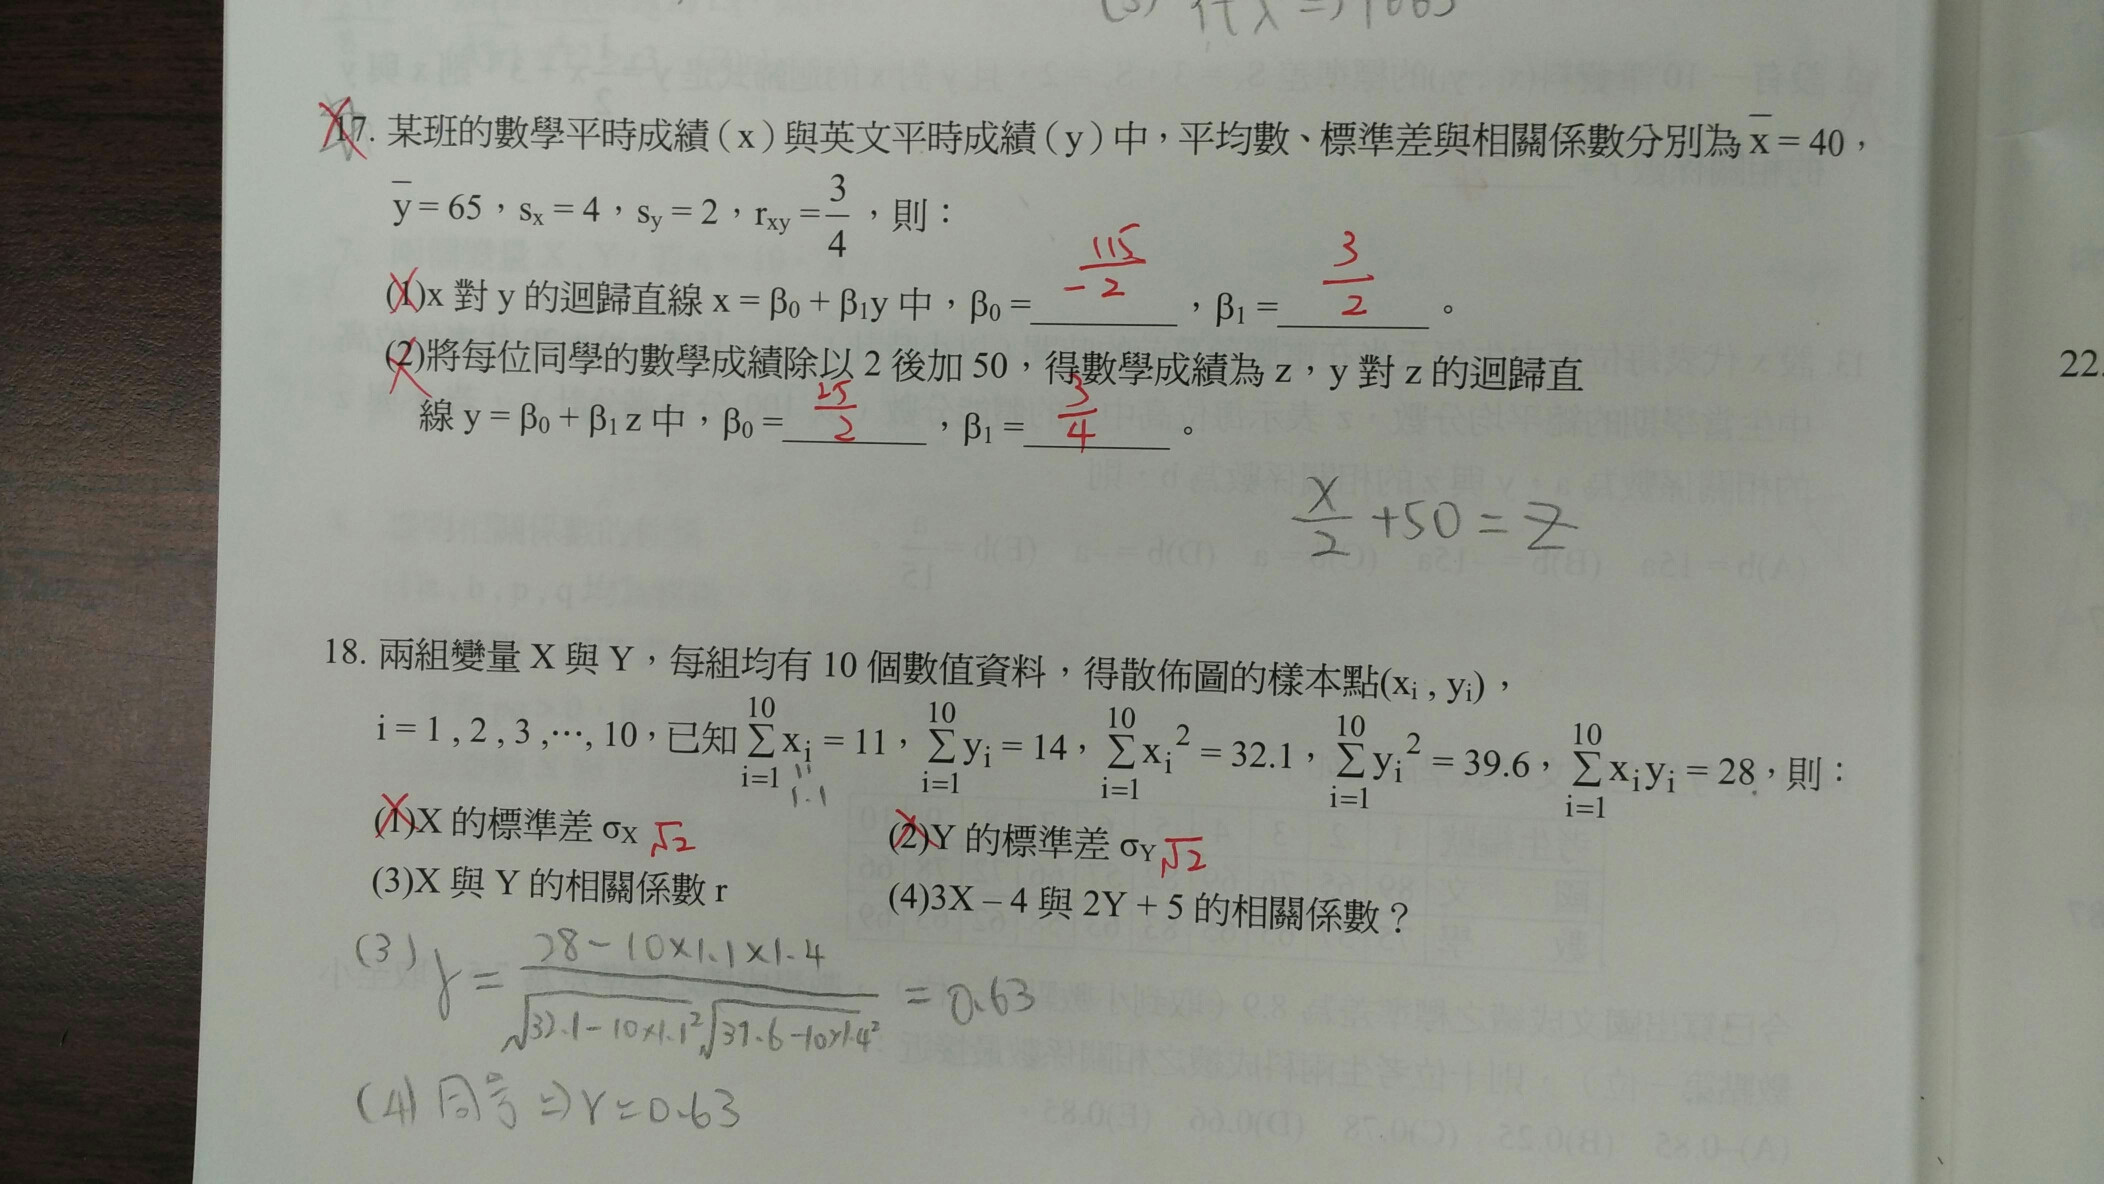 17. 某班的數學平時成績(x)與英文平時成績(y)中，平均數、標準差與相關係數分別為 x̄ = 40，
ȳ = 65，sx = 4，sy = 2，rxy = 3/4，則：
(1)x 對 y 的迴歸直線 x = β0 + β1y 中，β0 = 115/-2，β1 = 3/2。
(2)將每位同學的數學成績除以 2 後加 50，得數學成績為 z，y 對 z 的迴歸直
線 y = β0 + β1 z 中，β0 = 25/2，β1 = 3/4。
x/2 +50 = Z
18. 兩組變量 X 與 Y，每組均有 10 個數值資料，得散佈圖的樣本點(xi , yi)，
i = 1 , 2 , 3 ,…, 10，已知 10 Σ i=1 xi = 11，10 Σ i=1 yi = 14，10 Σ i=1 xi² = 32.1，10 Σ i=1 yi² = 39.6，10 Σ i=1 xiyi = 28，則：
1.1
(1)X 的標準差 σX √2 (2)Y 的標準差 σY √2
(3)X 與 Y 的相關係數 r (4)3X – 4 與 2Y + 5 的相關係數？
(3) γ = 28-10×1.1×1.4 / √32.1-10×1.1² √39.6-10×1.4² = 0.63
(4) 同号 ⇒ r = 0.63
22.